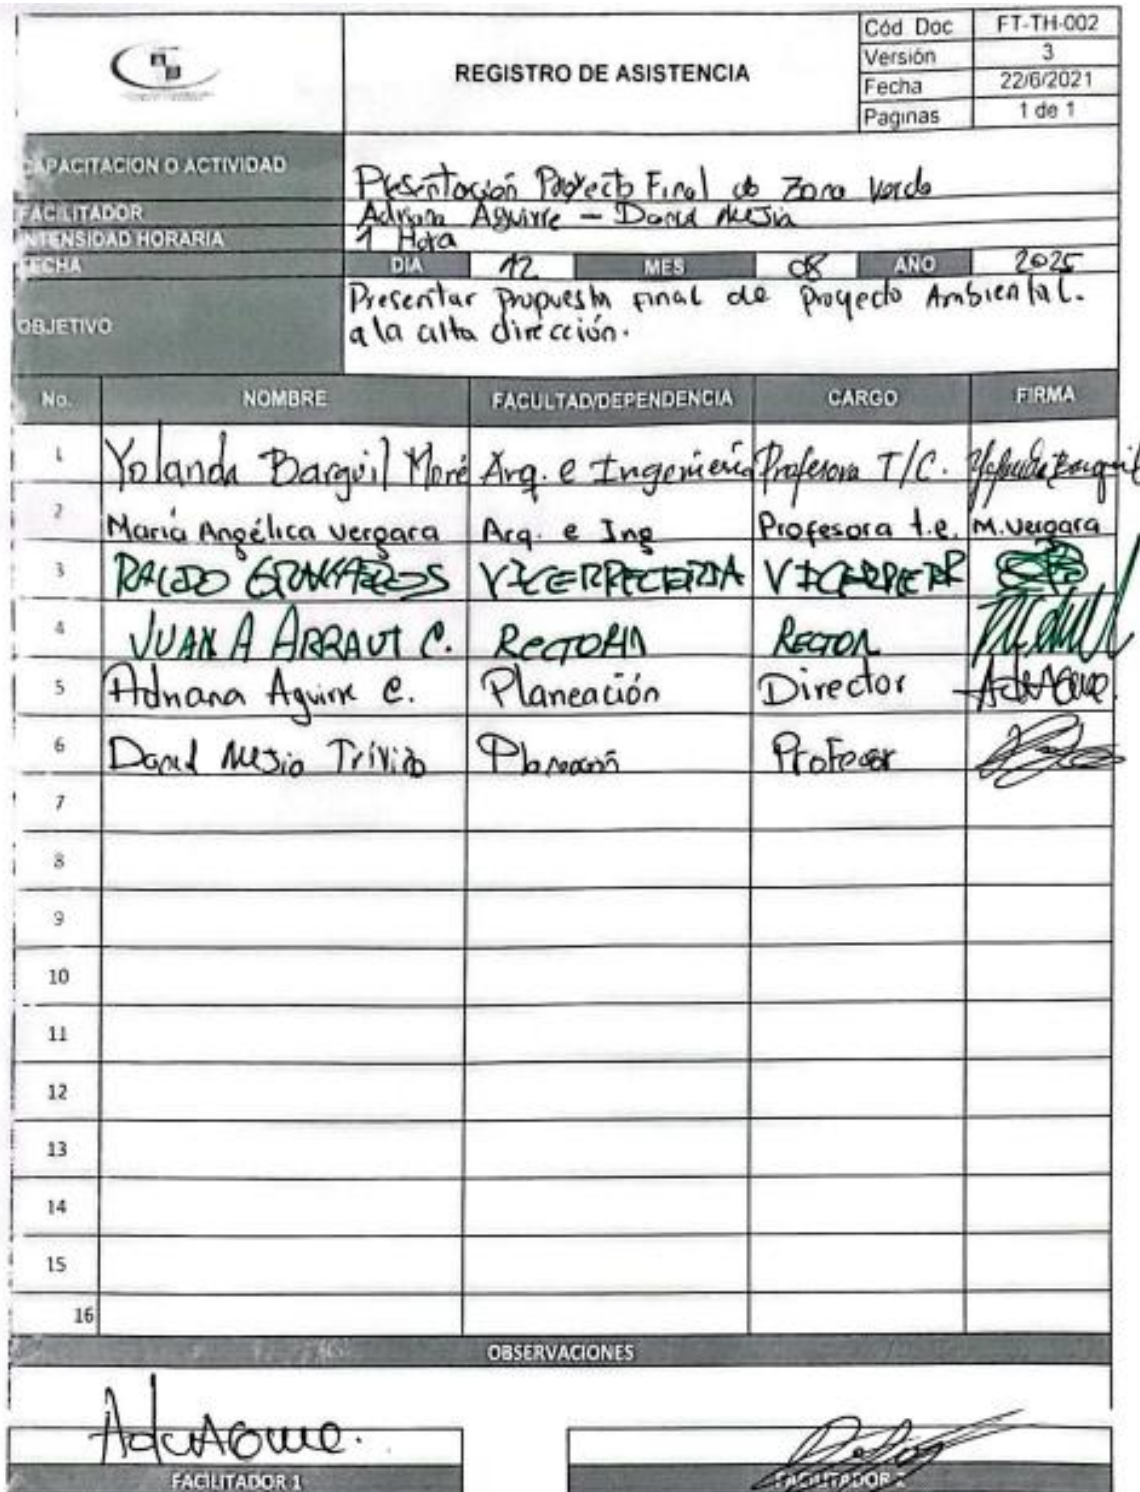 REGISTRO DE ASISTENCIA
Cód Doc FT-TH-002
Versión 3
Fecha 22/6/2021
Paginas 1 de 1
CAPACITACION O ACTIVIDAD Presentación Proyecto Final de Zona Verde
FACILITADOR Adriana Aguirre - David Mejia
INTENSIDAD HORARIA 1 Hora
FECHA DIA 12 MES 08 AÑO 2025
OBJETIVO Presentar propuesta final de proyecto Ambiental.
a la alta dirección.
No. NOMBRE FACULTAD/DEPENDENCIA CARGO FIRMA
1 Yolanda Barguil Moré Arq. e Ingeniería Profesora T/C. Yolanda Barguil
2 María Angélica Vergara Arq. e Ing Profesora t.c. M. Vergara
3 GRANADOS VICERRECTORIA
4 JUAN A ARRAUT C. RECTORIA RECTOR
5 Adriana Aguirre C. Planeación Director
6 David Mejia Triviño Planeación Profesor
7
8
9
10
11
12
13
14
15
16
OBSERVACIONES
FACILITADOR 1 FACILITADOR 2